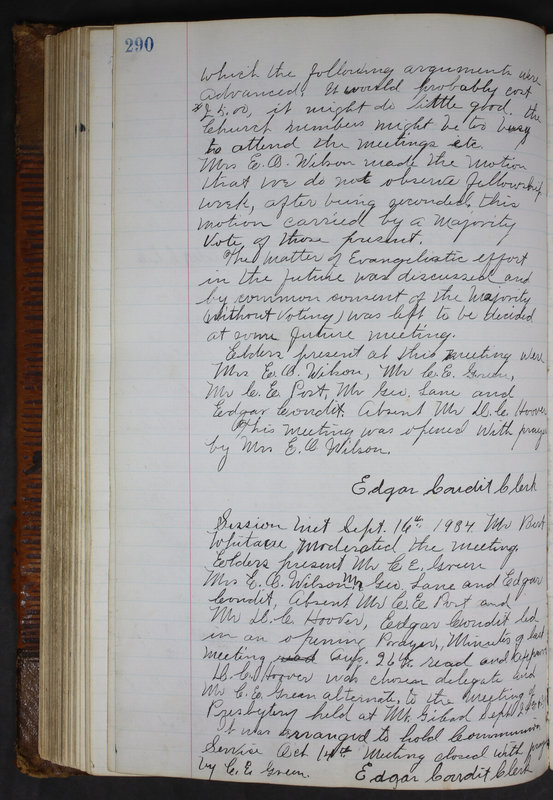 290
which the following arguments were
advanced. It would probably cost
$25.00, it might do little good. the
Church members might be too busy
to attend the meetings etc.
Mrs E. O. Wilson made the motion
that we do not observe fellowship
week, after being seconded, this
motion carried by a Majority
Vote of those present.
The Matter of Evangelistic effort
in the future was discussed and
by common consent of the Majority
(without Voting) was left to be decided
at some future meeting.
Elders present at this meeting were
Mrs E. O. Wilson, Mr C. E. Green,
Mr C. E. Post, Mr Geo. Lane and
Edgar Condit. Absent Mr D. C. Hoover
This meeting was opened with prayer
by Mrs E. O. Wilson.
Edgar Condit Clerk
Session met Sept. 16th 1934 Mr
moderated the meeting.
Eolders present Mr C E. Green
Mrs E. O. Wilson Mr Geo. Lane and Edgar
Condit, Absent Mr C. E. Post and
Mr D. C. Hoover, Edgar Condit led
in an opening Prayer, Minutes of last
meeting read Aug. 26th read and Approved
D. C. Hoover was chosen delegate and
Mr C. E. Green alternate, to the meeting of
Presbytery held at Mt. Gilead Sept
It was arranged to hold Communion
Service Oct 14th Meeting closed with prayer
by C. E. Green. Edgar Condit Clerk